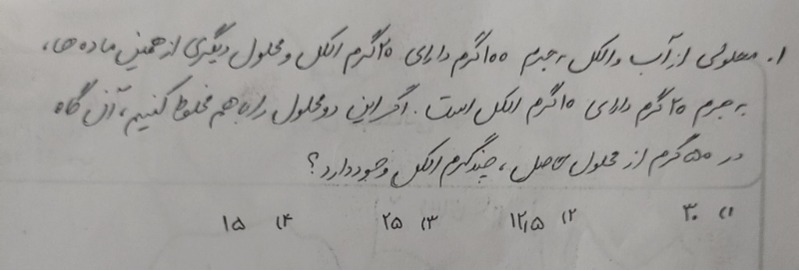 ۱. محلولی از آب و الکل به جرم ۱۰۰ گرم دارای ۲۰ گرم الکل و محلول دیگری از همین ماده ها،
به جرم ۲۰ گرم دارای ۱۰ گرم الکل است. اگر این دو محلول را با هم مخلوط کنیم، آن گاه
در ۵۰ گرم از محلول حاصل، چند گرم الکل وجود دارد؟
۱) ۳۰ ۲) ۱۲٫۵ ۳) ۲۵ ۴) ۱۵